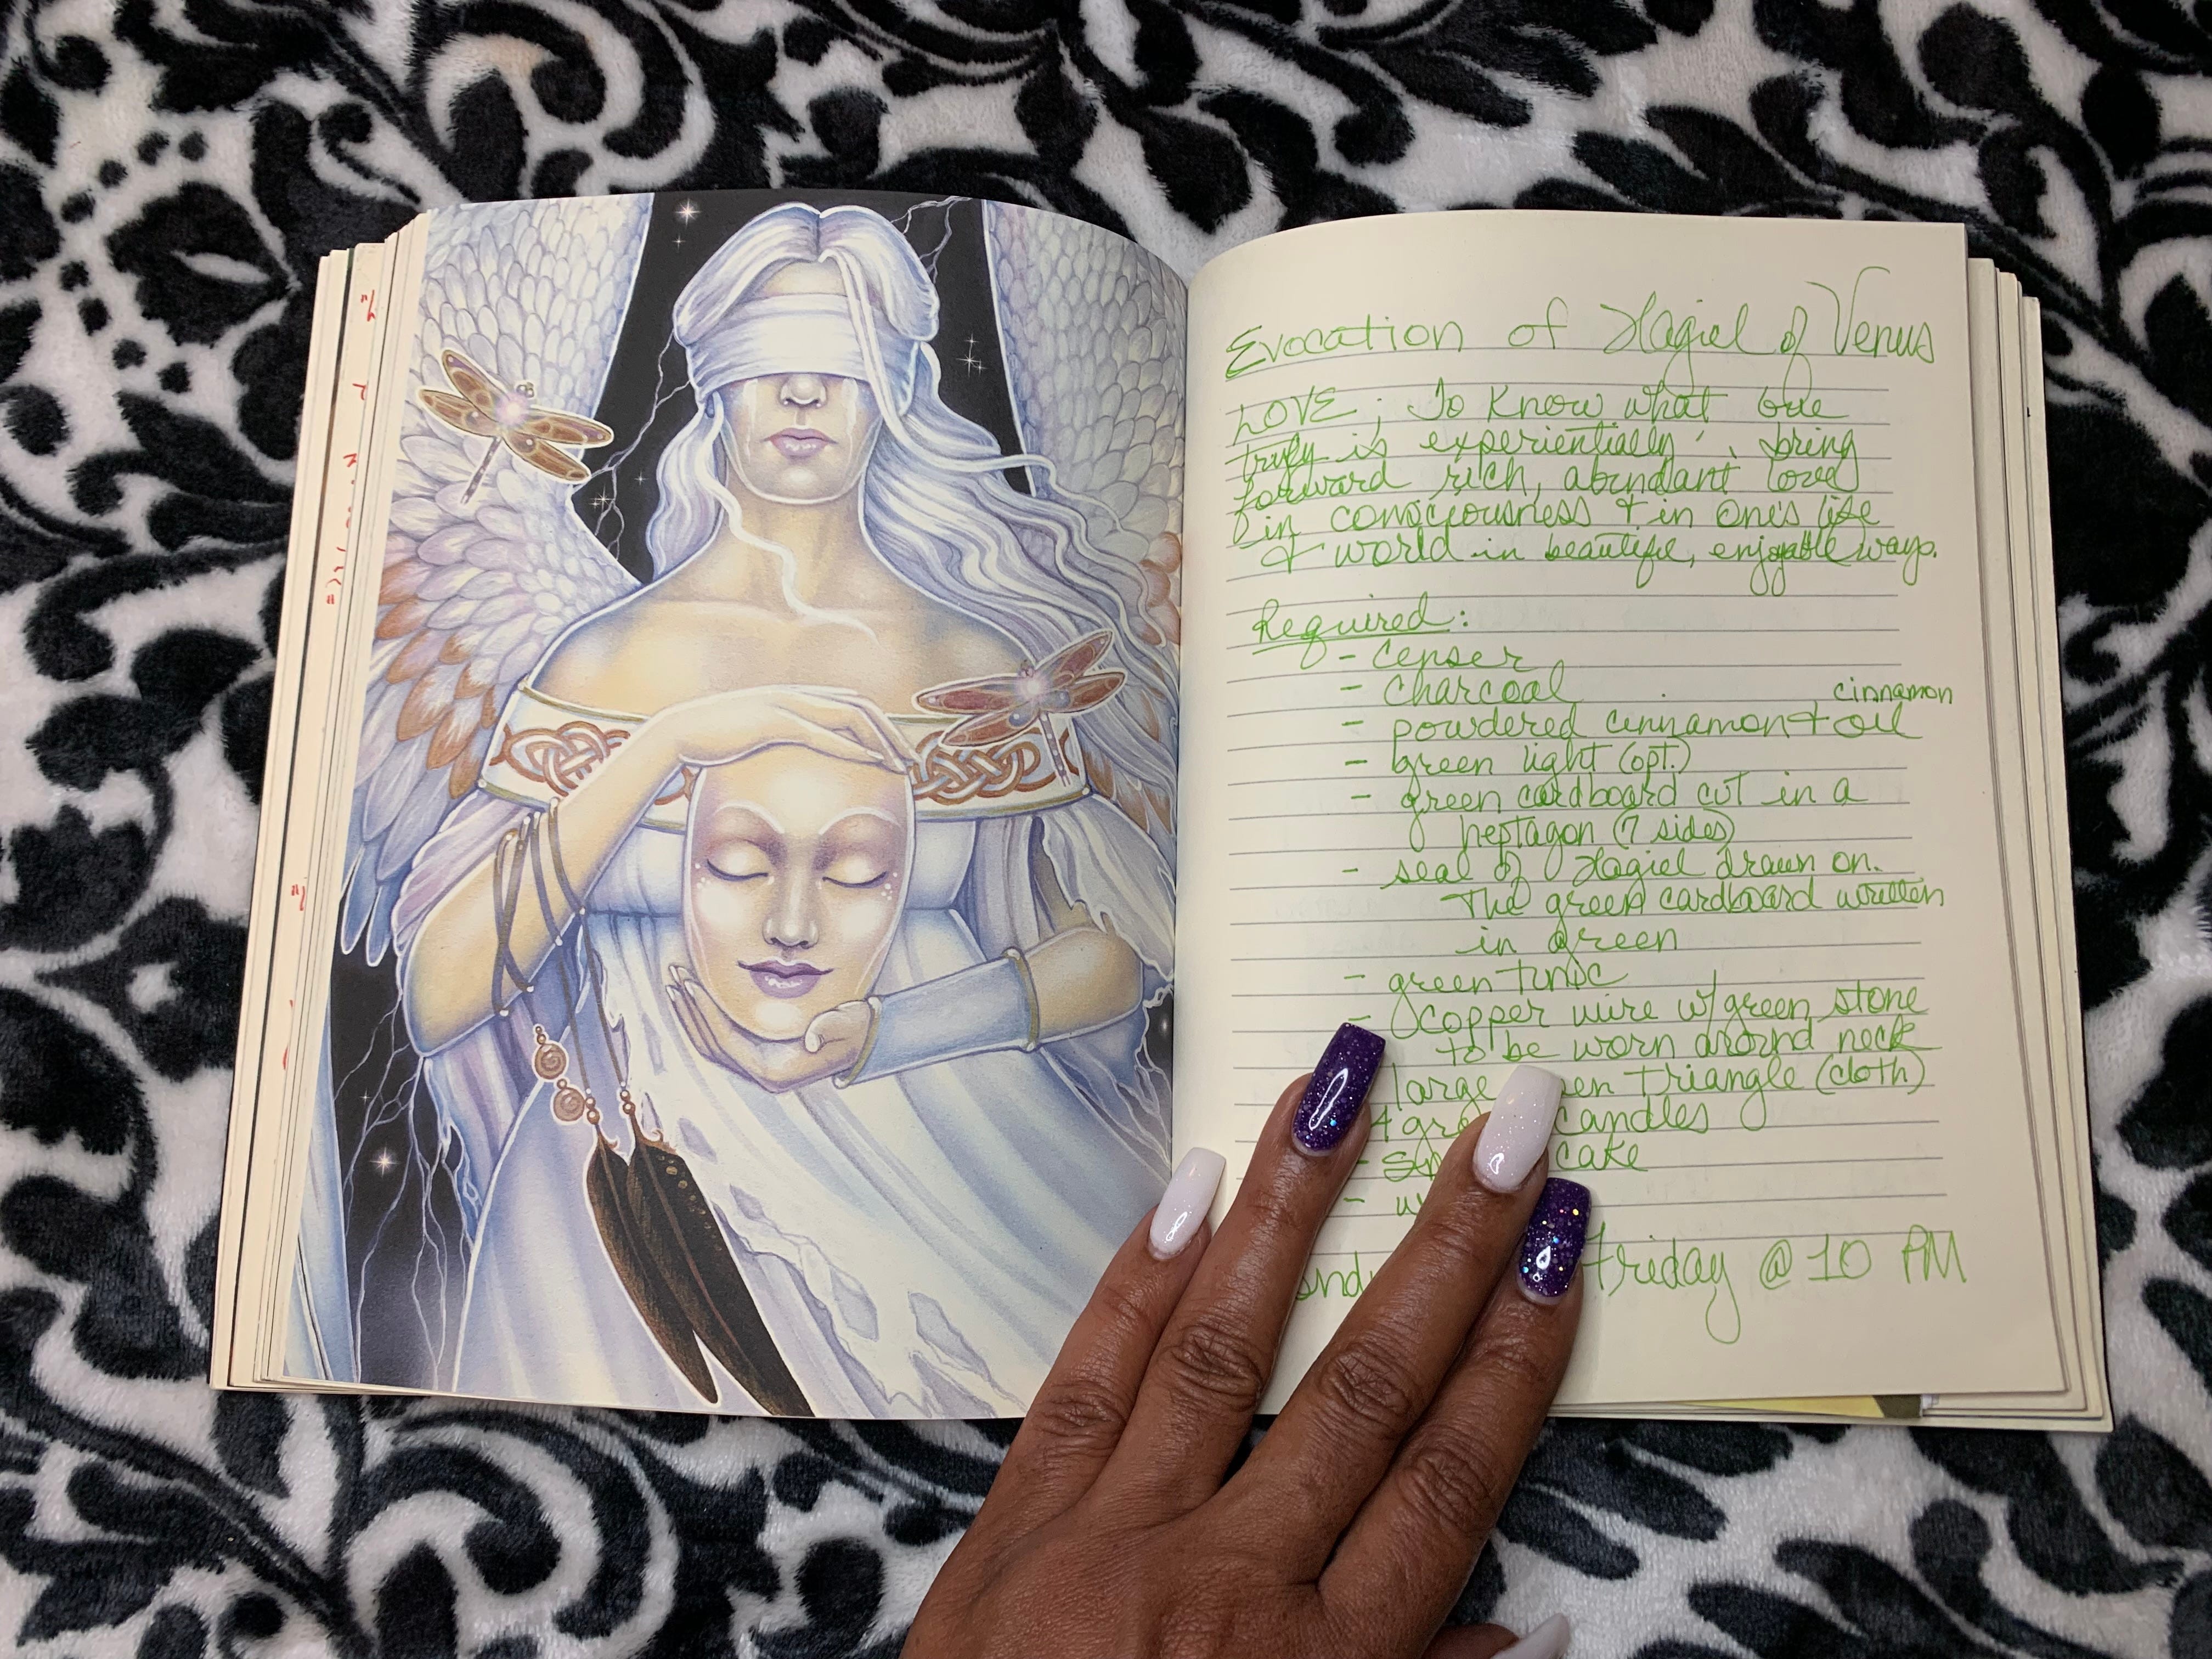 Evocation of Hagiel of Venus
LOVE; To Know what love
truly is experientially; bring
forward rich, abundant love
in consciousness & in one's life
& world in beautiful, enjoyable ways.
Required:
- censer
- charcoal
cinnamon
- powdered cinnamon + oil
- green light (opt.)
- green cardboard cut in a
heptagon (7 sides)
- seal of Hagiel drawn on.
The green cardboard written
in green
- green tunic
- copper wire w/green stone
to be worn around neck
large triangle (cloth)
4 candles
cake
Friday @ 10 PM